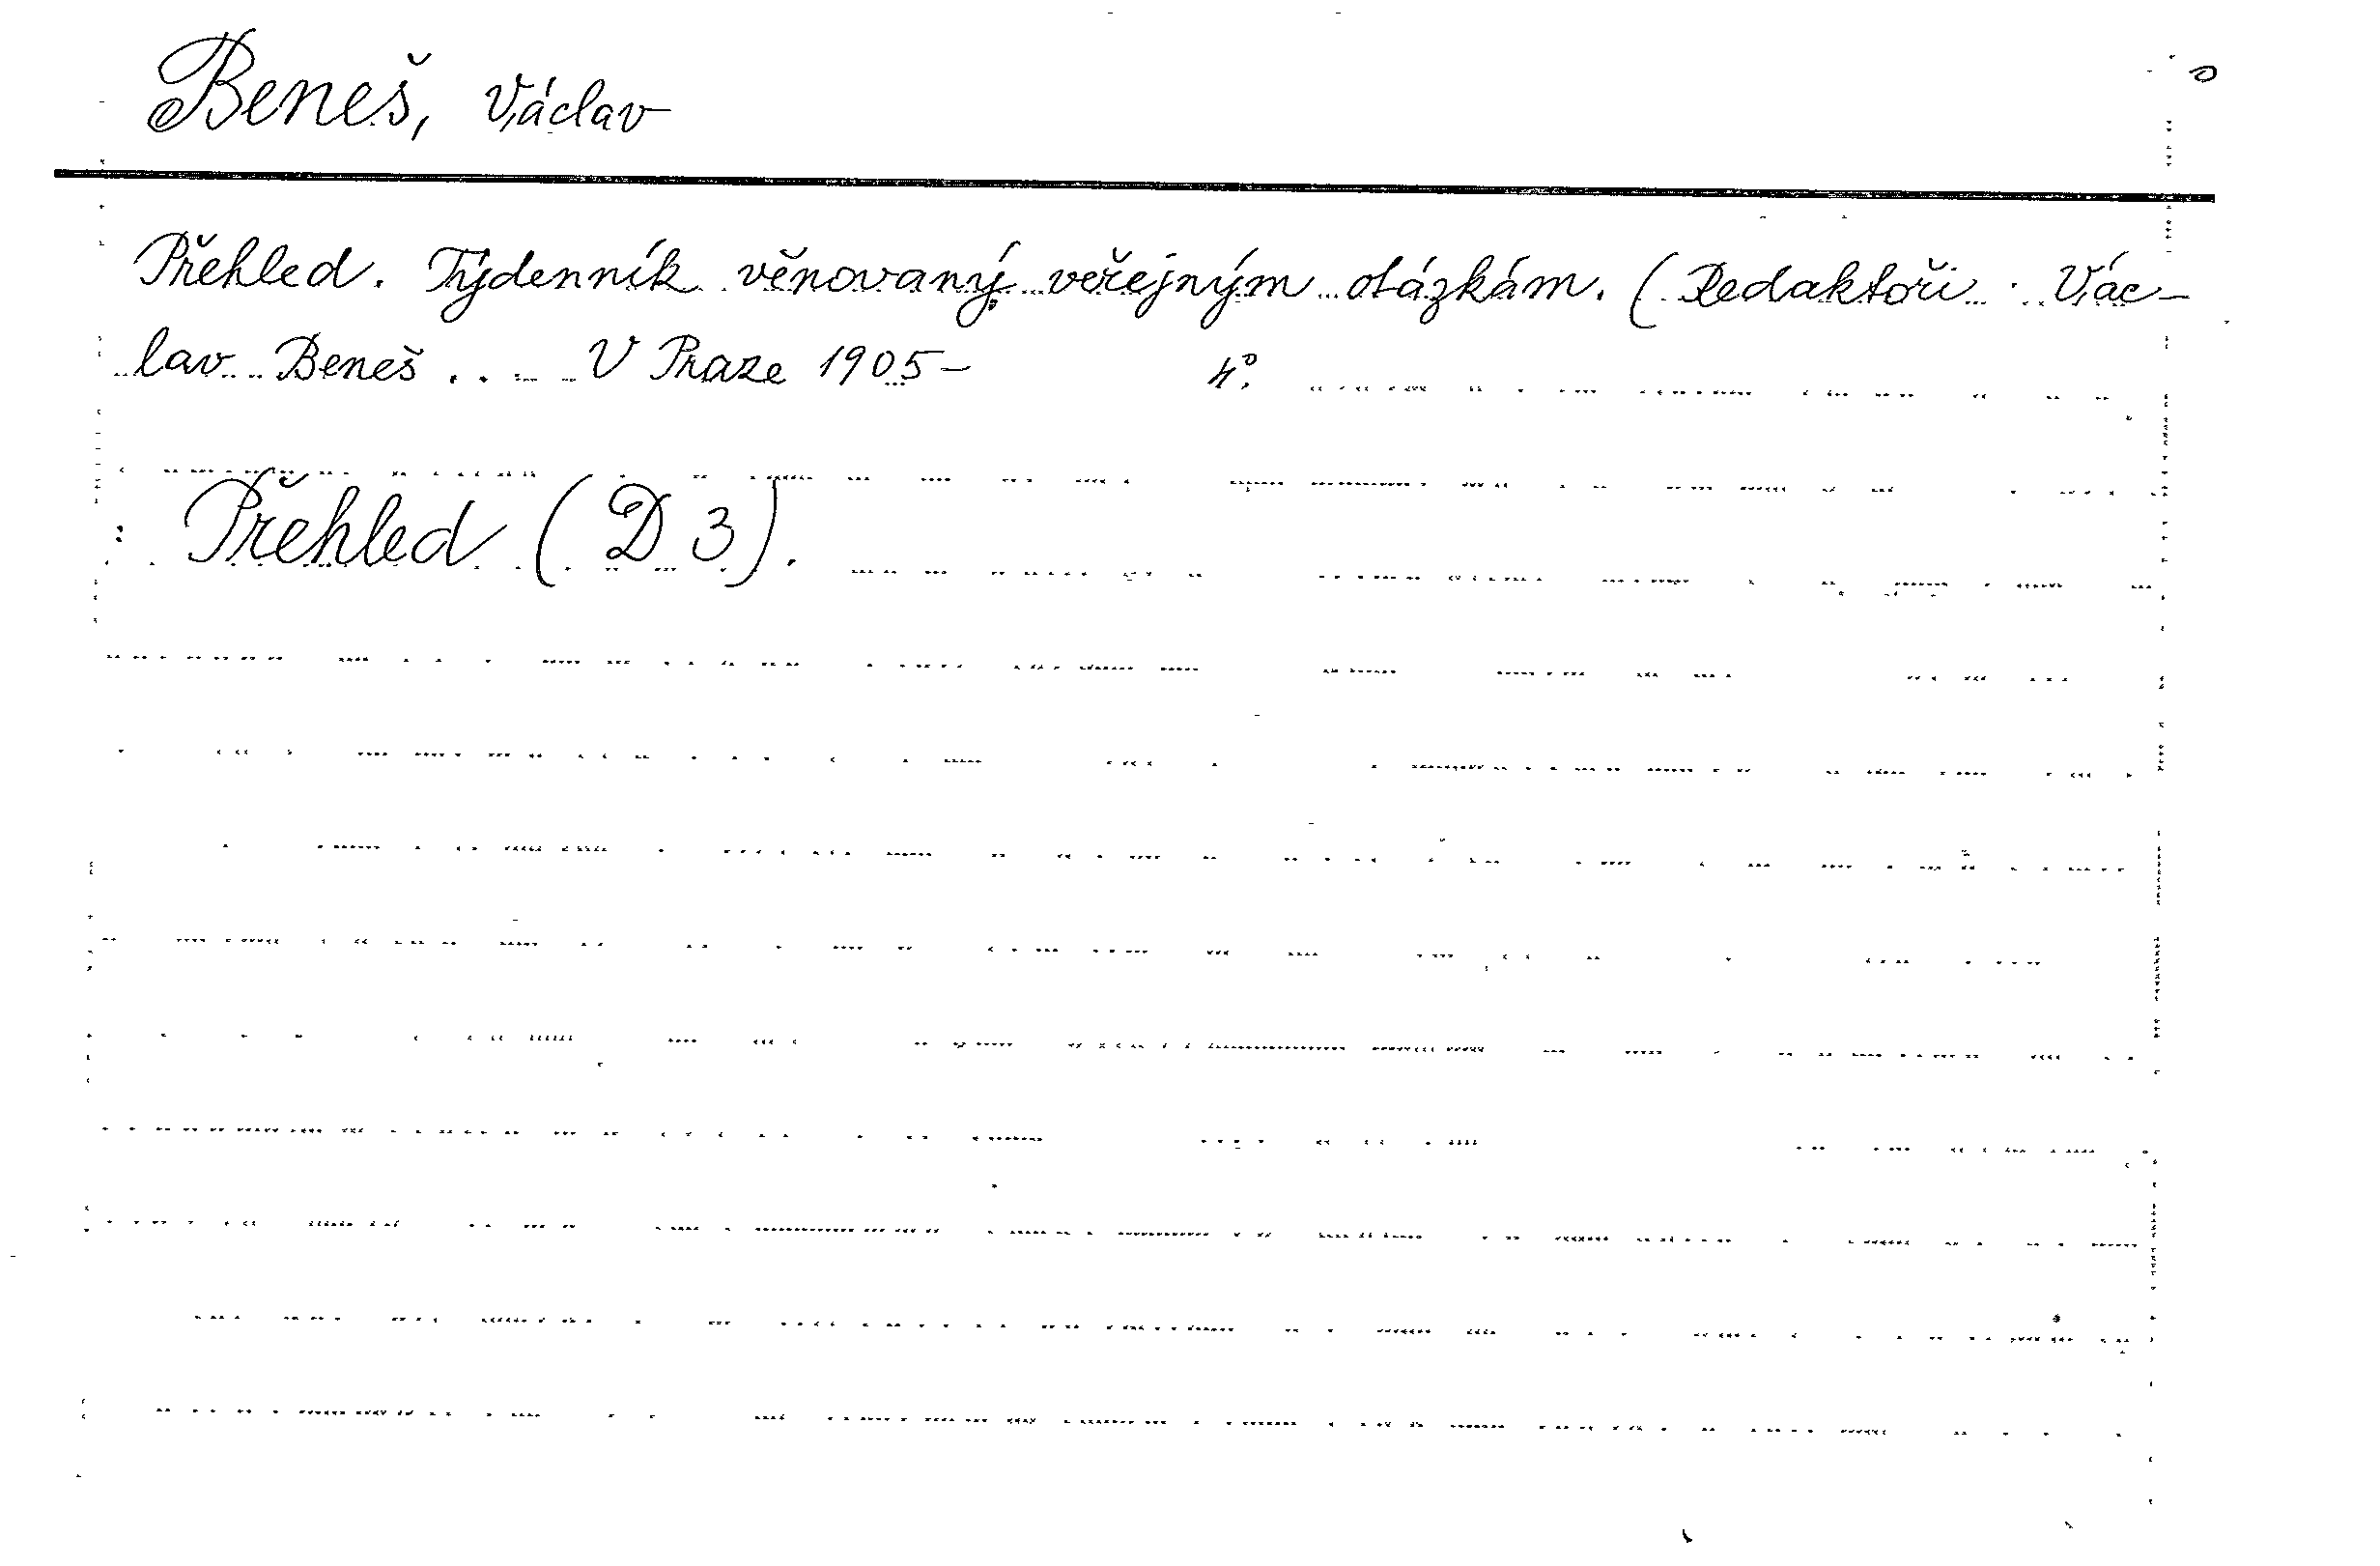 Beneš, Václav
Přehled. Týdenník věnovaný veřejným otázkám. (Redaktoři: Vác-
lav Beneš ... V Praze 1905- 4°.
Přehled (D 3).